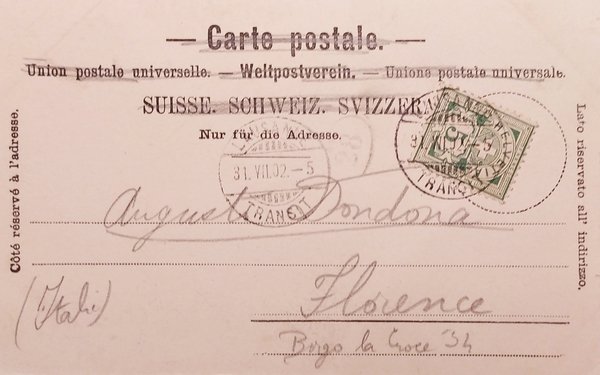 Carte postale.
Union postale universelle. — Weltpostverein. — Unione postale universale.
SUISSE. SCHWEIZ. SVIZZERA
Nur für die Adresse.
Côté réservé à l'adresse.
Lato riservato all' indirizzo.
HELVETIA
5
31.VII.02.-5
TRANSIT
LAUSANNE
31.VII.02.-5
TRANSIT
Augusto Dondona
(Itali)
Florence
Borgo la Croce 34